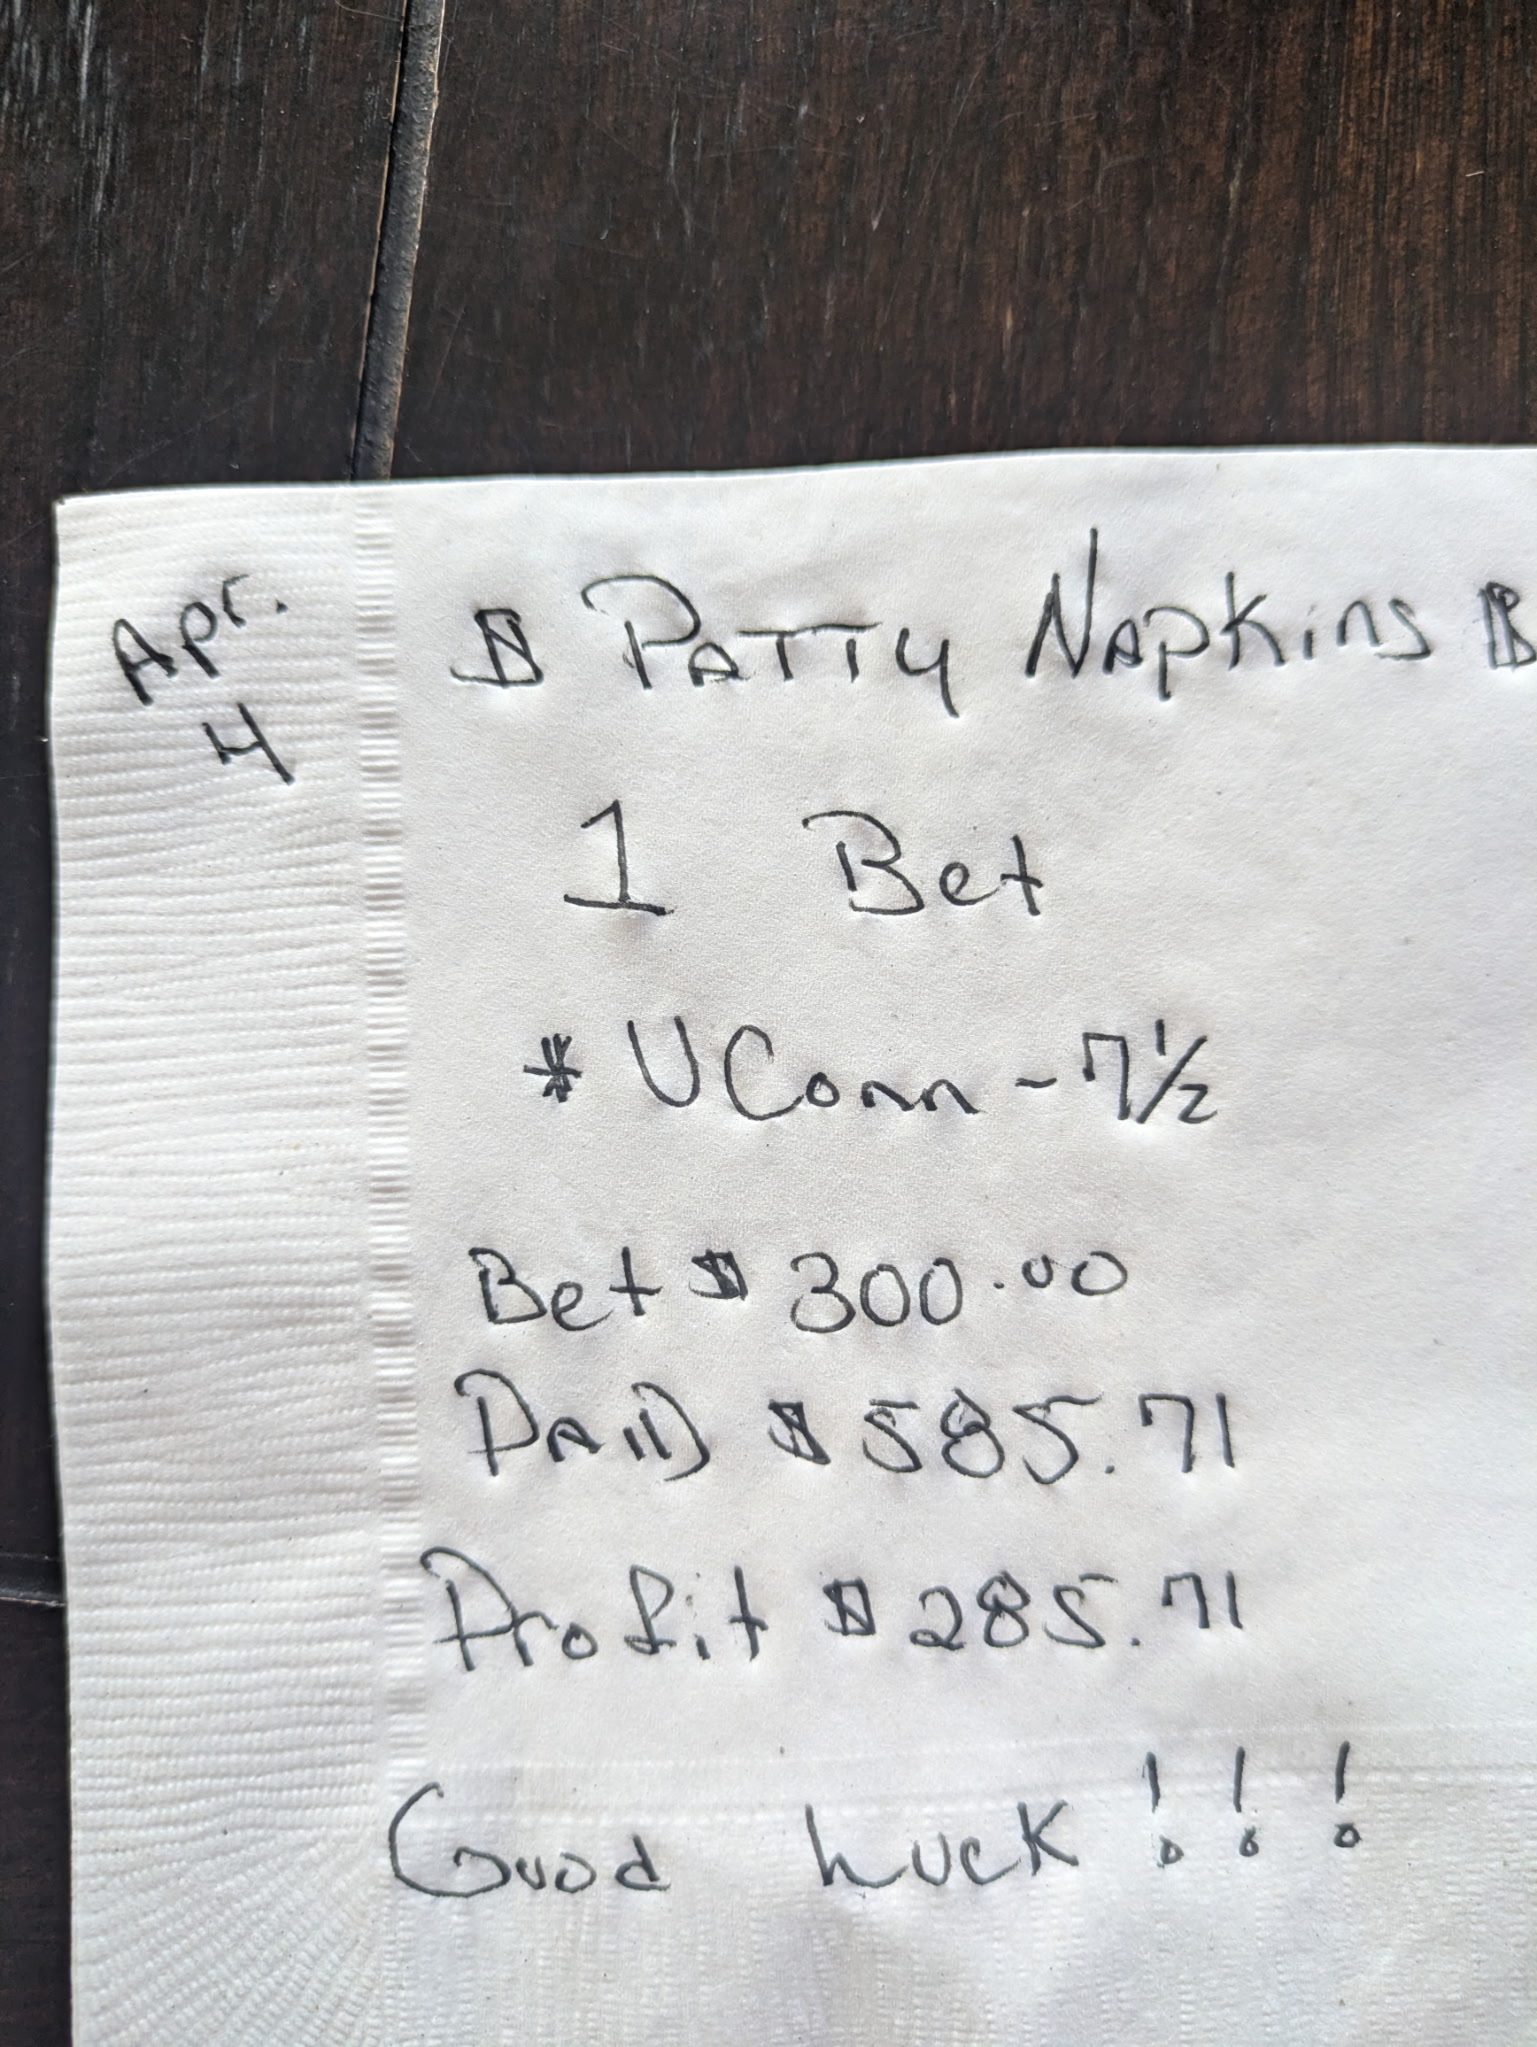 Apr.
4
$ PATTy NApkins $
1 Bet
* UConn - 7 1/2
Bet $ 300.00
PAID $ 585.71
Profit $ 285.71
Good Luck !!!